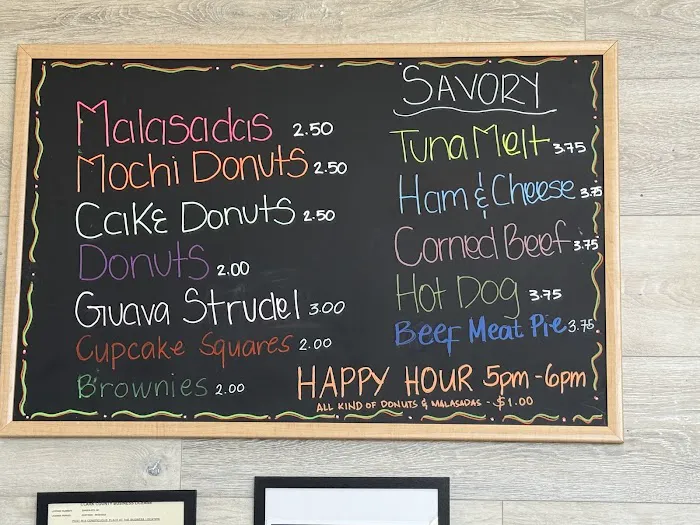 Malasadas 2.50
Mochi Donuts 2.50
Cake Donuts 2.50
Donuts 2.00
Guava Strudel 3.00
Cupcake Squares 2.00
Brownies 2.00
SAVORY
Tuna Melt 3.75
Ham & Cheese 3.75
Corned Beef 3.75
Hot Dog 3.75
Beef Meat Pie 3.75
HAPPY HOUR 5pm-6pm
ALL KIND OF DONUTS & MALASADAS - $1.00
CLARK COUNTY BUSINESS LICENSE